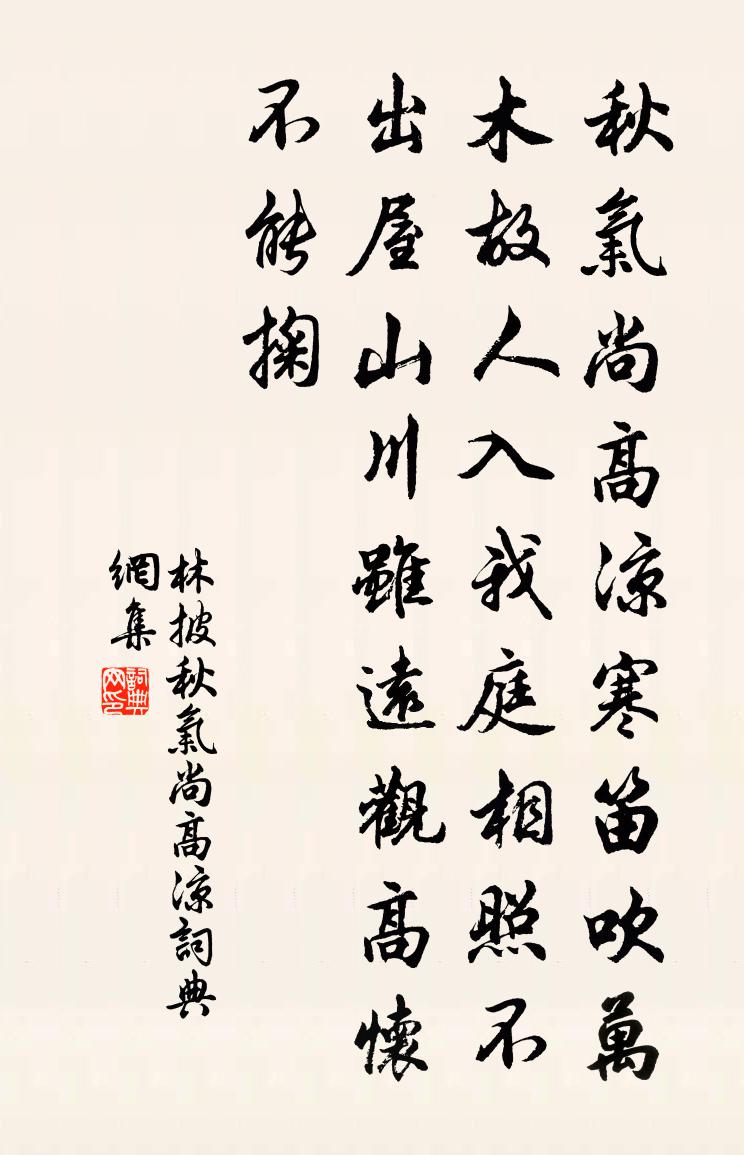 秋氣尚高凉寒笛吹萬
木故人入我庭相照不
出屋山川雖遠觀高懷
不能掬
林披秋氣尚高凉詞典
網集
詞典
网印